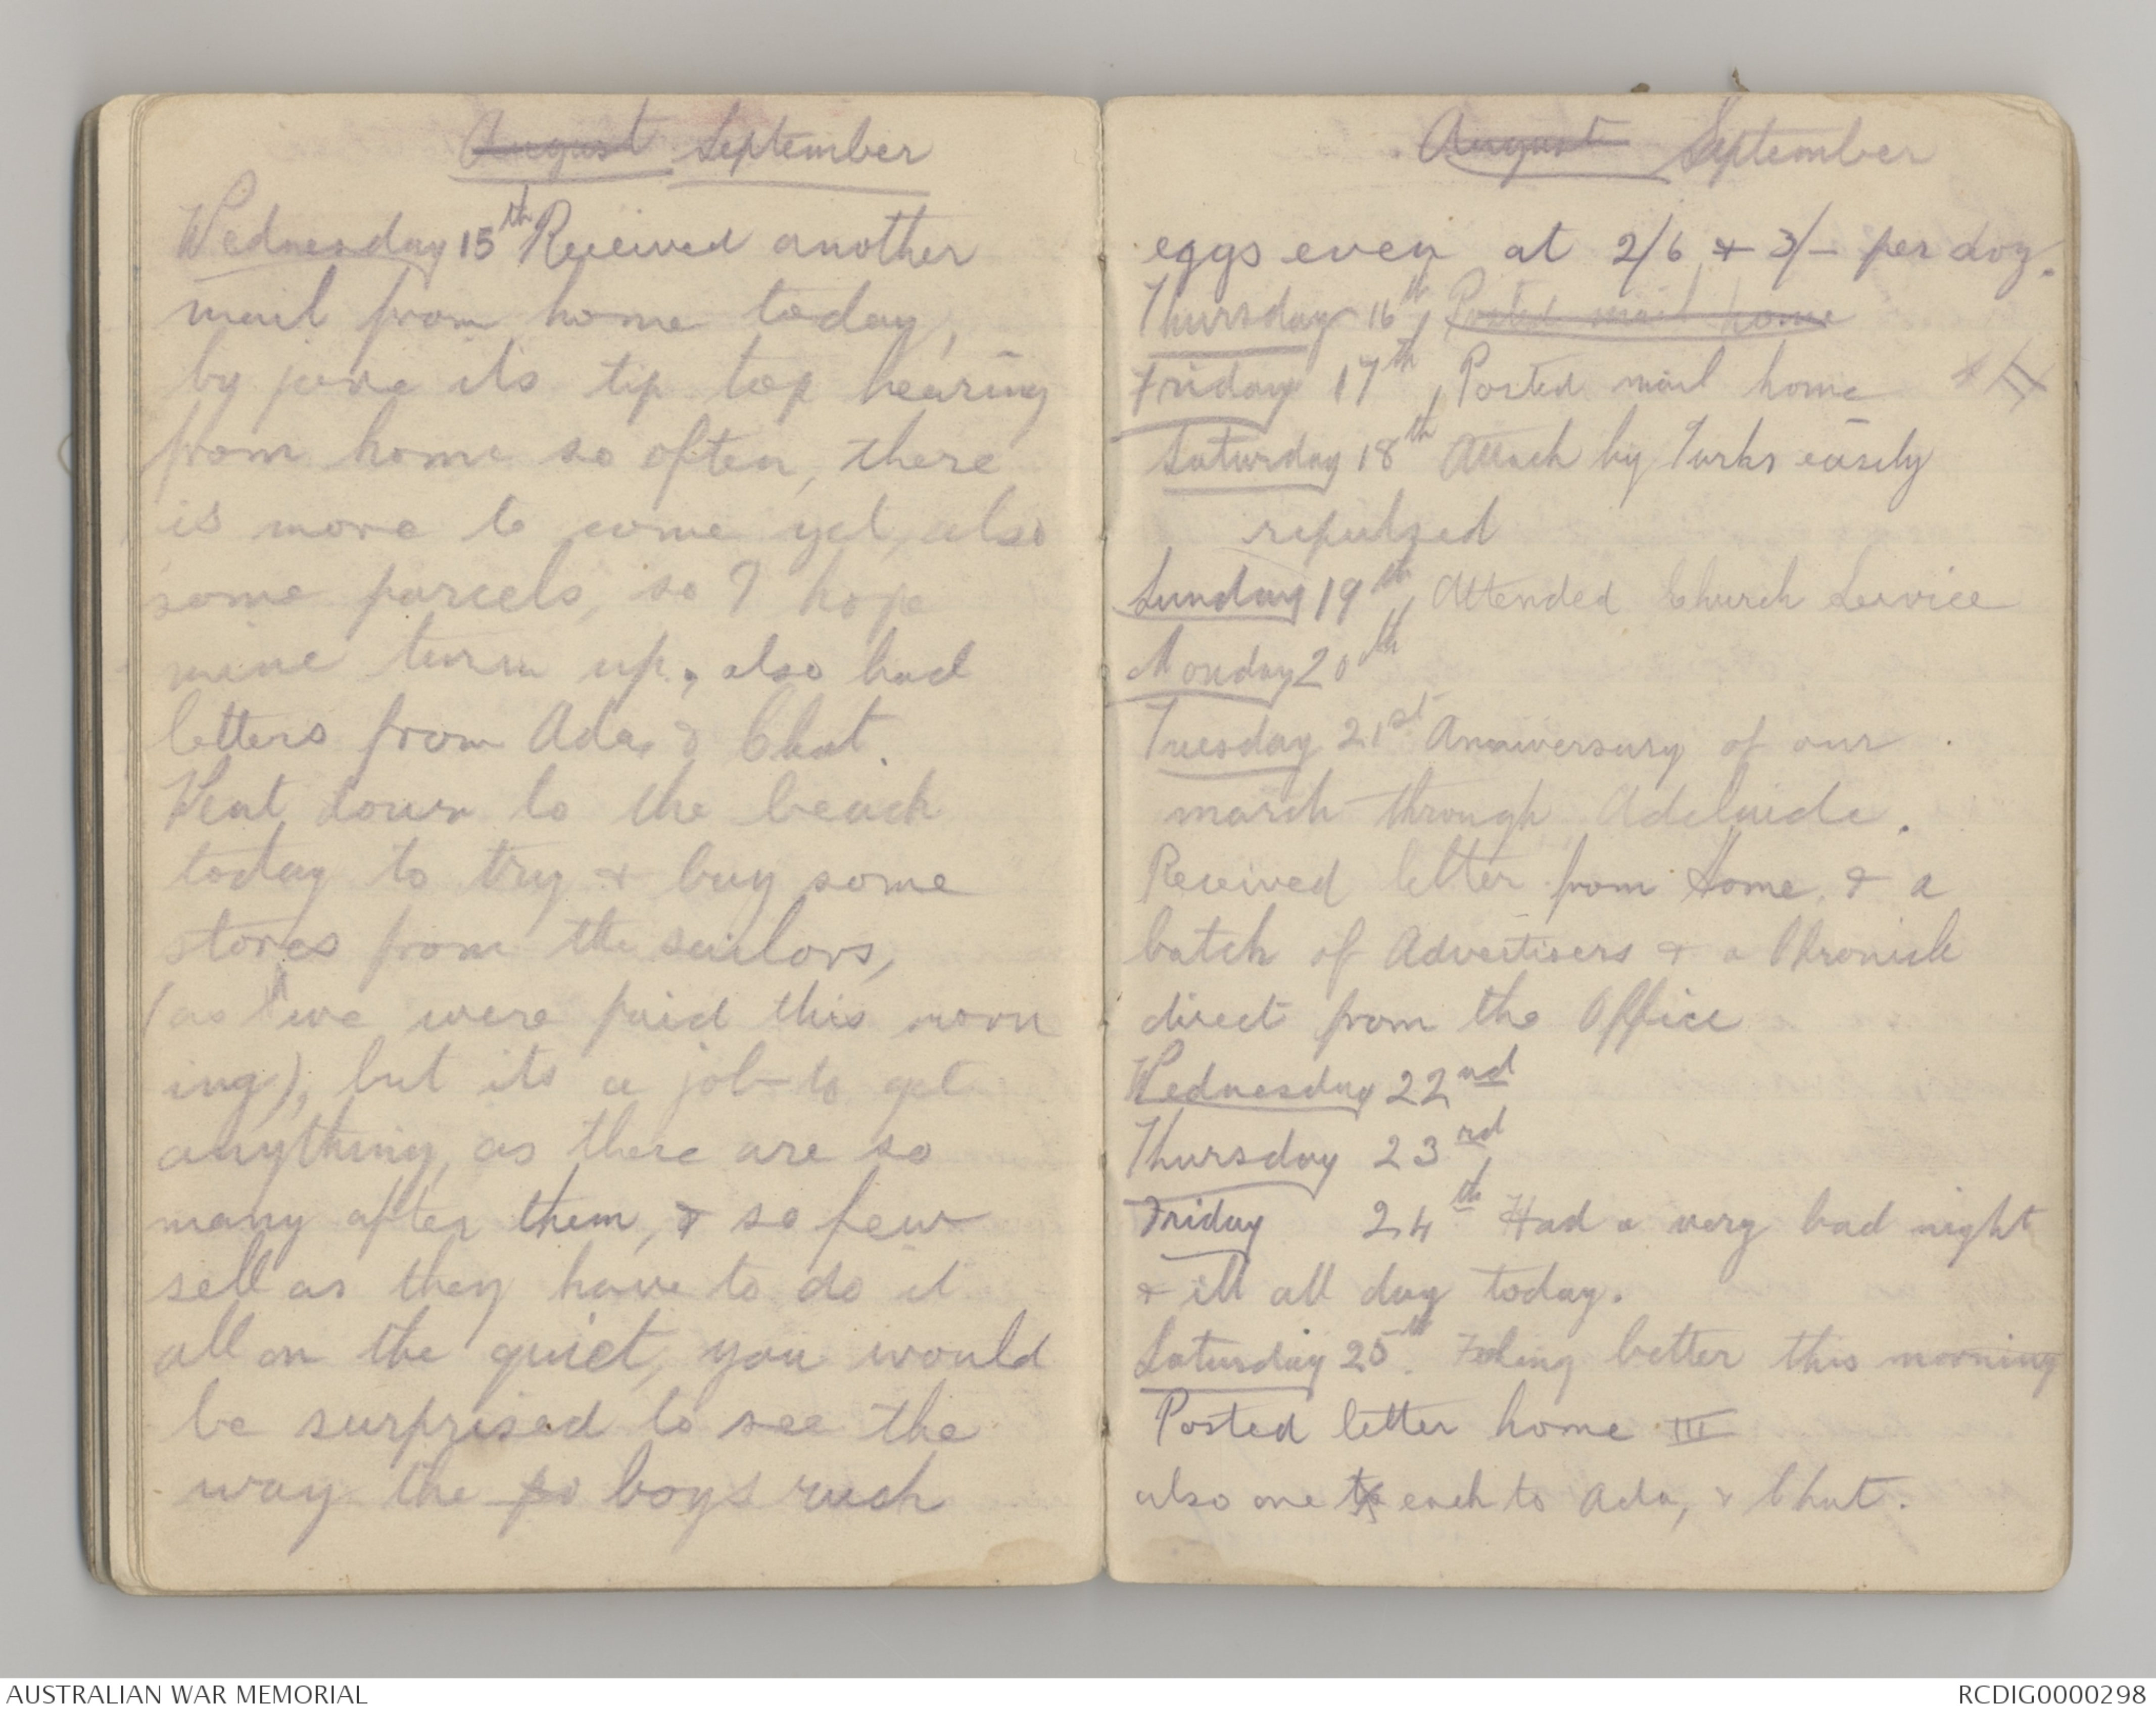 August September
Wednesday 15th Received another
mail from home today,
by jove its tip top hearing
from home so often, there
is more to come yet, also
some parcels, so I hope
mine turn up, also had
letters from Ada & Chat.
Went down to the beach
today to try & buy some
stores from the sailors,
(as we were paid this morn
ing), but its a job to get
anything, as there are so
many after them, & so few
sell as they have to do it
all on the quiet, you would
be surprised to see the
way the po boys rush
August September
eggs even at 2/6 & 3/- per doz.
Thursday 16th, Posted mail home
Friday 17th, Posted mail home
Saturday 18th Attack by Turks easily
repulsed
Sunday 19th, Attended Church Service
Monday 20th
Tuesday 21st Anniversary of our
march through Adelaide.
Received letter from Home, & a
batch of Advertisers & a Chronicle
direct from the Office
Wednesday 22nd
Thursday 23rd
Friday 24th Had a very bad night
& ill all day today.
Saturday 25th. Feeling better this morning
Posted letter home III
also one to each to Ada, & Chat.
AUSTRALIAN WAR MEMORIAL
RCDIG0000298